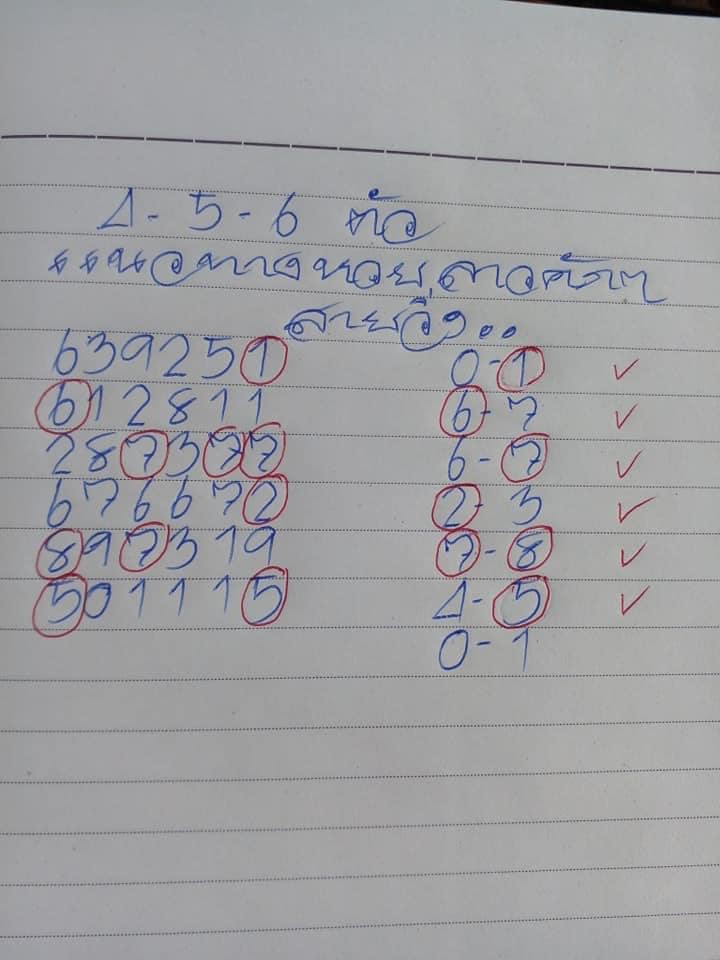 4-5-6 ตัว
แนวทางหวย,ลาวคัดๆ
สายวิ่ง..
639251 0-1 ✓
612811 6-7 ✓
287377 6-7 ✓
676672 2-3 ✓
897319 7-8 ✓
501115 4-5 ✓
0-1